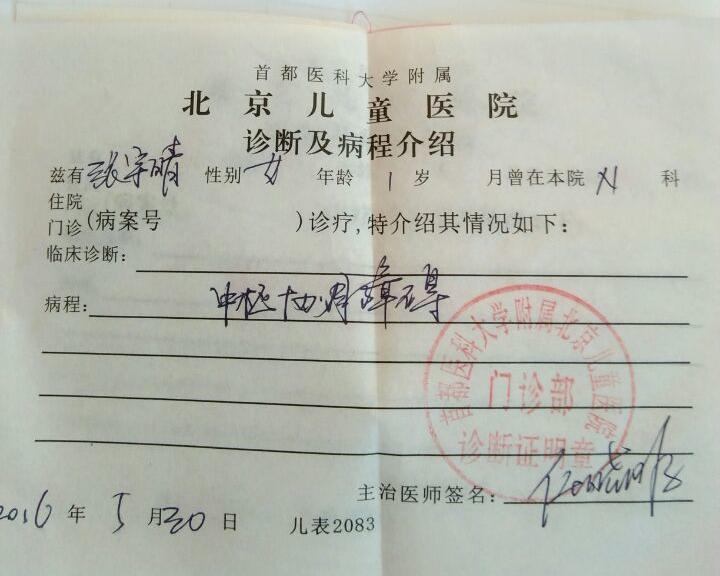 首都医科大学附属
北京儿童医院
诊断及病程介绍
兹有 张宇晴 性别 女 年龄 1 岁 月曾在本院 科
住院
门诊 (病案号 )诊疗,特介绍其情况如下:
临床诊断:
病程: 中枢协调障碍
首都医科大学附属北京儿童医院
门诊部
诊断证明章
主治医师签名:
2016 年 5 月 20 日 儿表2083